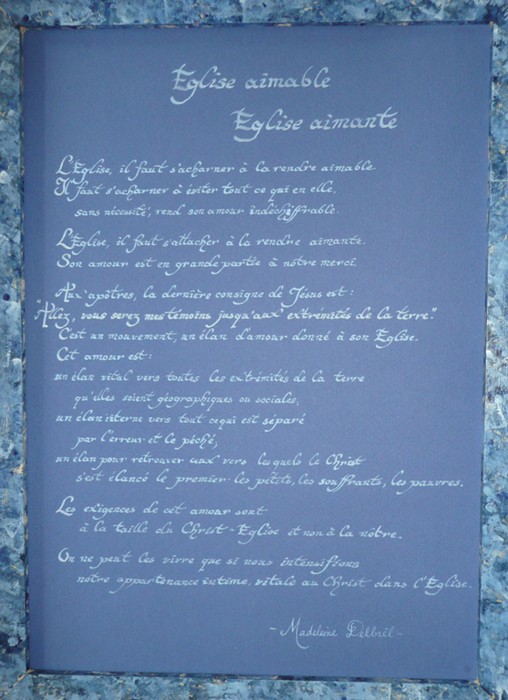 Eglise aimable
Eglise aimante
L'Eglise, il faut s'acharner à la rendre aimable
Il faut s'acharner à éviter tout ce qui en elle,
sans nécessité, rend son amour indéchiffrable.
L'Eglise, il faut s'attacher à la rendre aimante.
Son amour est en grande partie à notre merci.
Aux apôtres, la dernière consigne de Jésus est :
"Allez, vous serez mes témoins jusqu'aux extrémités de la terre."
C'est un mouvement, un élan d'amour donné à son Eglise.
Cet amour est :
un élan vital vers toutes les extrémités de la terre
qu'elles soient géographiques ou sociales,
un élan interne vers tout ce qui est séparé
par l'erreur et le péché,
un élan pour retrouver ceux vers lesquels le Christ
s'est élancé le premier : les petits, les souffrants, les pauvres.
Les exigences de cet amour sont
à la taille du Christ-Eglise et non à la nôtre.
On ne peut les vivre que si nous intensifions
notre appartenance intime, vitale au Christ dans l'Eglise.
- Madeleine Delbrêl -